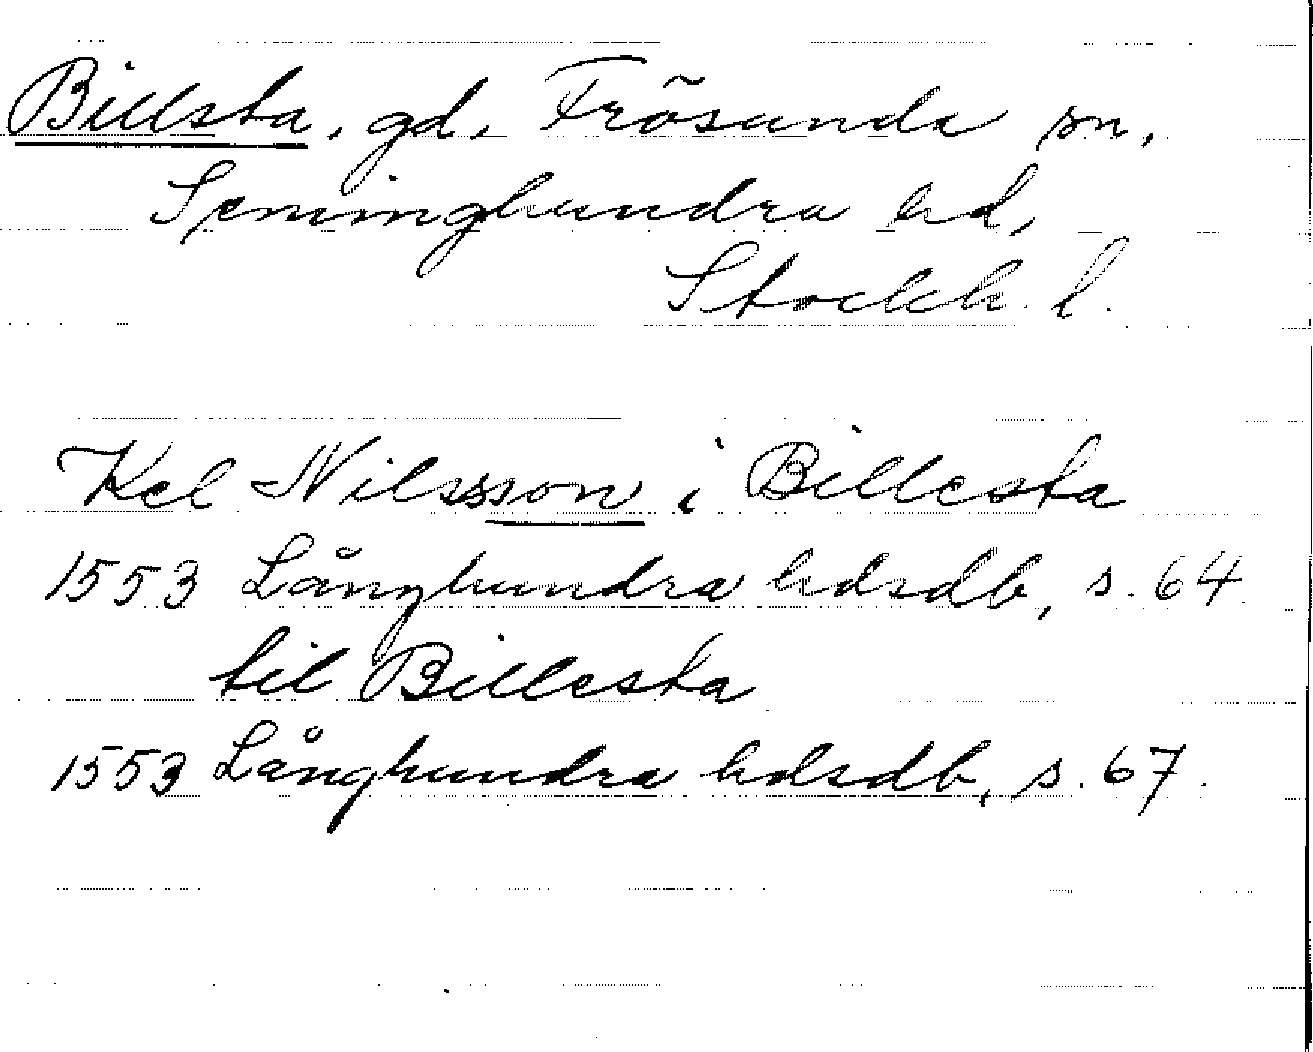 Billsta, gd, Frösunda sn,
Seminghundra hd,
Stockh. l.
Kel Nilsson i Billesta
1553 Långhundra hdsdb, s. 64
til Billesta
1553 Långhundra hdsdb, s. 67.